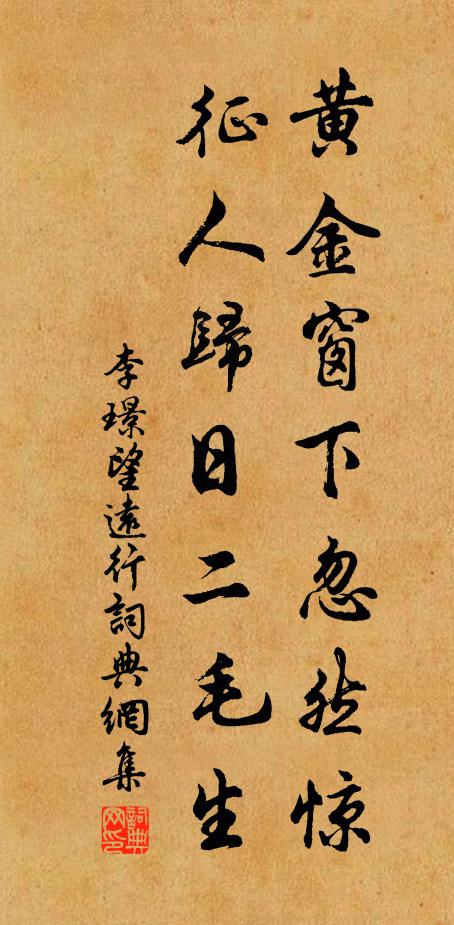 黄金窗下忽然惊
征人歸日二毛生
李璟望遠行詞典網集
詞典网印